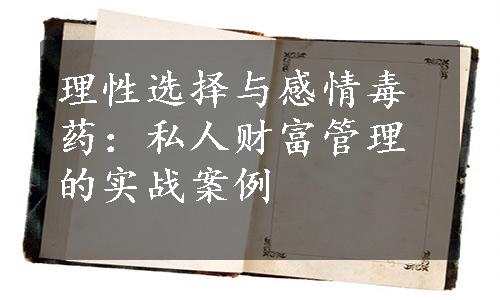 理性选择与感情毒
药：私人财富管理
的实战案例